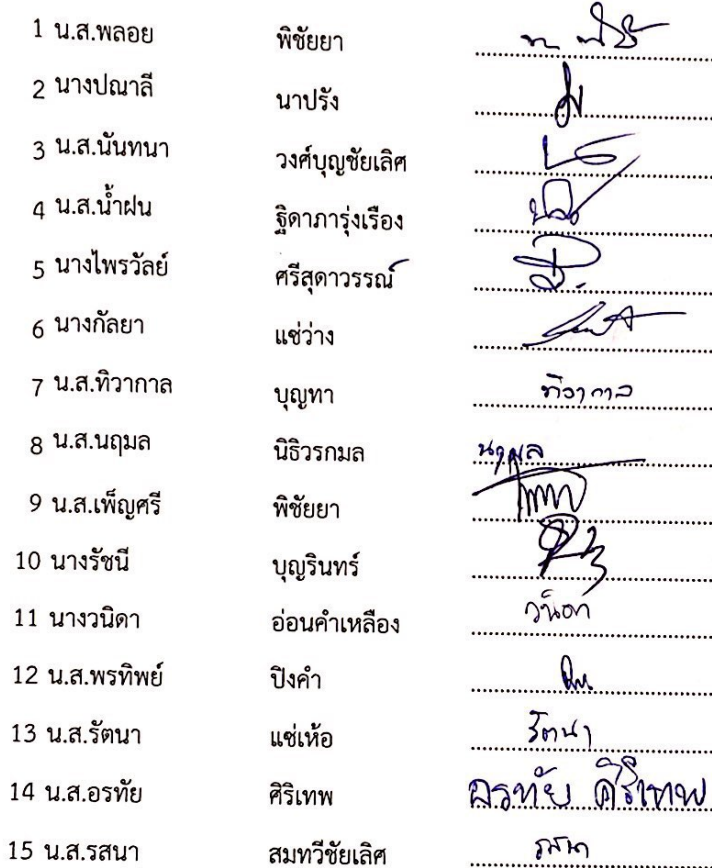 1 น.ส.พลอย พิชัยยา
2 นางปณาลี นาปรัง
3 น.ส.นันทนา วงศ์บุญชัยเลิศ
4 น.ส.น้ำฝน ฐิดาภารุ่งเรือง
5 นางไพรวัลย์ ศรีสุดาวรรณ์
6 นางกัลยา แซ่ว่าง
7 น.ส.ทิวากาล บุญทา ทิวากาล
8 น.ส.นฤมล นิธิวรกมล นฤมล
9 น.ส.เพ็ญศรี พิชัยยา
10 นางรัชนี บุญรินทร์
11 นางวนิดา อ่อนคำเหลือง วนิดา
12 น.ส.พรทิพย์ ปิงคำ
13 น.ส.รัตนา แซ่เห้อ รัตนา
14 น.ส.อรทัย ศิริเทพ อรทัย ศิริเทพ
15 น.ส.รสนา สมทวีชัยเลิศ รสนา